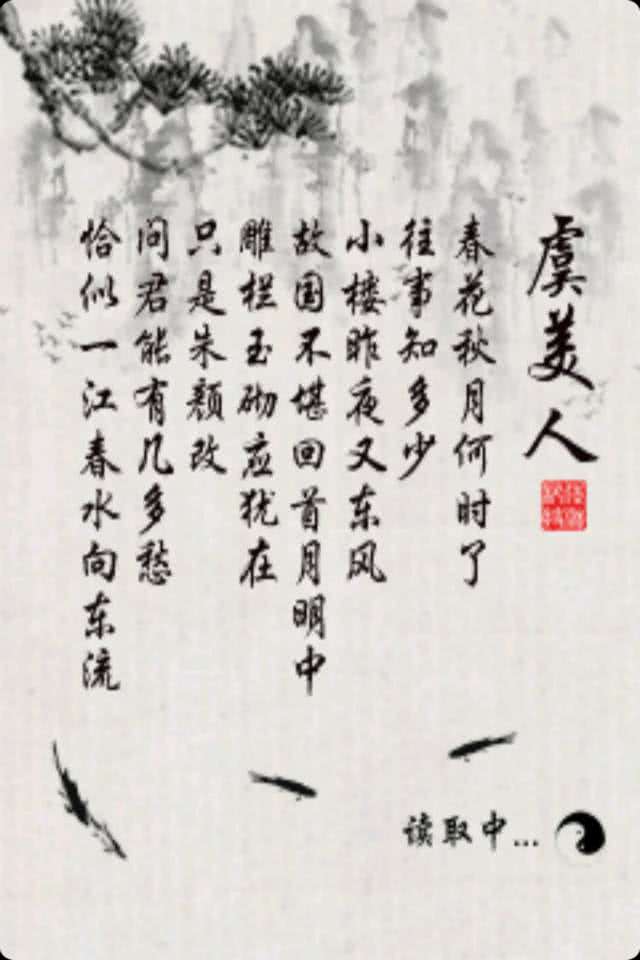 虞美人
春花秋月何时了
往事知多少
小楼昨夜又东风
故国不堪回首月明中
雕栏玉砌应犹在
只是朱颜改
问君能有几多愁
恰似一江春水向东流
读取中...